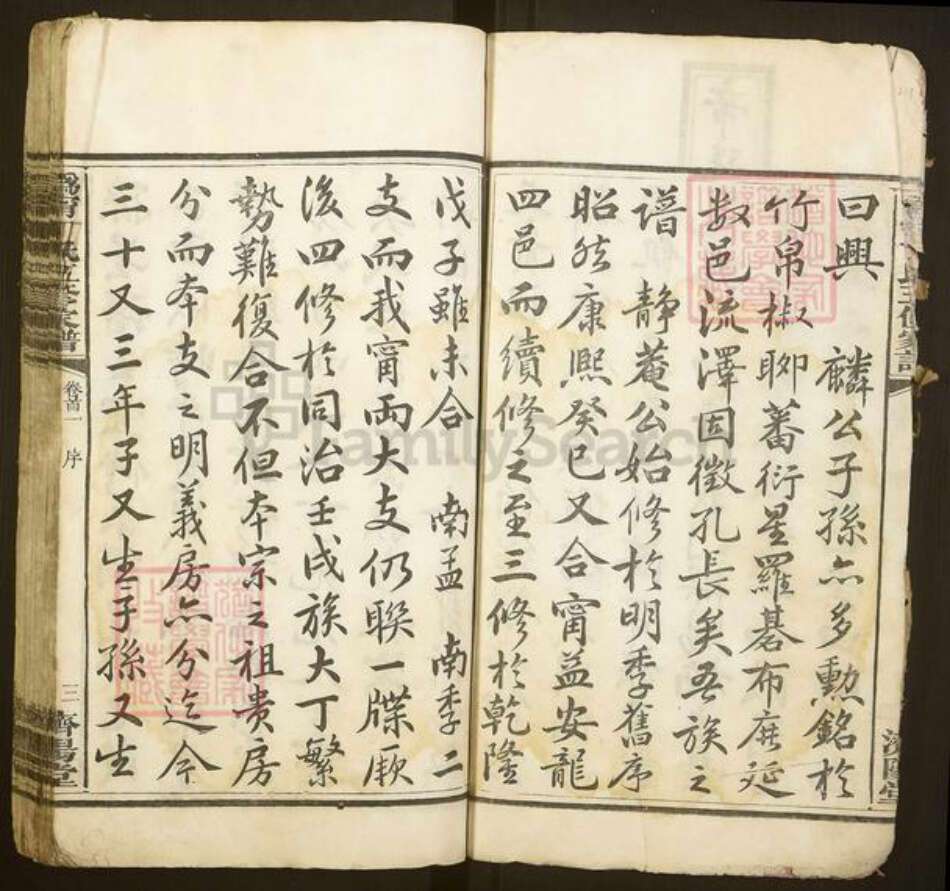 曰興 麟公子孫亦多勳銘於
竹帛椒聊蕃衍星羅碁布庶延
数邑流澤固徵孔長矣吾族之
譜 静菴公始修於明季舊序
昭然康熙癸巳又合甯益安龍
四邑而續修之至三修於乾隆
戊子雖未合 南孟 南季二
支而我甯两大支仍聯一牒厥
後四修於同治壬戌族大丁繁
勢難復合不但本宗之祖贵房
分而本支之明義房亦分迄今
三十又三年子又生子孫又生
五修家譜
卷首一 序
三 濟陽堂
FamilySearch